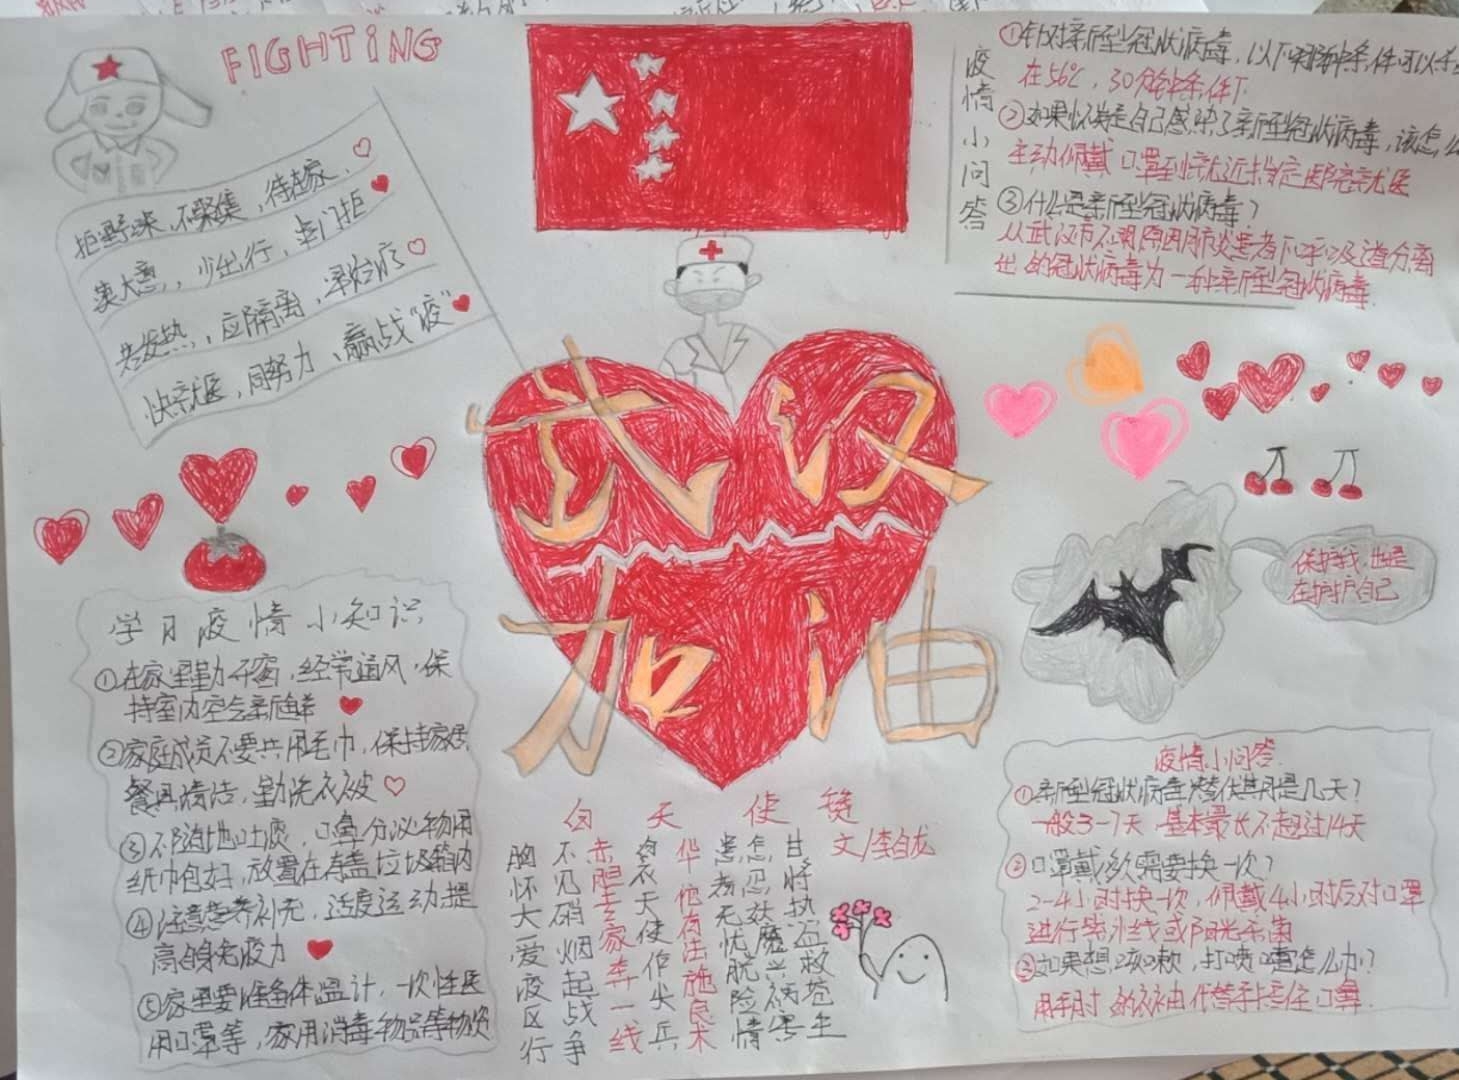 FIGHTING
拒野味，不聚集，待在家，
莫大意，少出行，串门拒
共发热，应隔离，早治疗
快就医，同努力，赢战“疫”
疫情小问答
①针对新型冠状病毒，以下哪种条件可以杀
在56℃，30分钟条件下
②如果怀疑自己感染了新型冠状病毒，该怎么
主动佩戴口罩到就近指定医院就医
③什么是新型冠状病毒？
从武汉市不明原因肺炎患者下呼吸道分离
出的冠状病毒为一种新型冠状病毒
武汉
加油
保护我，也是
在护护自己
学习疫情小知识
①在家里勤开窗，经常通风，保
持室内空气新鲜
②家庭成员不要共用毛巾，保持家居
餐具清洁，勤洗衣被
③不随地吐痰，口鼻分泌物用
纸巾包好，放置在有盖垃圾箱内
④注意营养补充，适度运动，提
高自身免疫力
⑤家里要准备体温计，一次性医
用口罩等，家用消毒物品等物资
白天使赞
文/李白龙
胸怀大爱疫区行
不见硝烟起战争
赤胆 家奔一线
白衣天使作尖兵
华佗有法施良术
患者无忧脱险情
怎忍妖魔兴病害
甘将执 救苍生
疫情小问答
①新型冠状病毒潜伏期是几天？
一般3-7天 基本最长不超过14天
②口罩戴多久需要换一次？
2-4小时换一次，佩戴4小时后对口罩
进行紫外线或阳光杀菌
③如果想咳嗽，打喷嚏怎么办？
用手肘的衣袖代替手捂住口鼻.